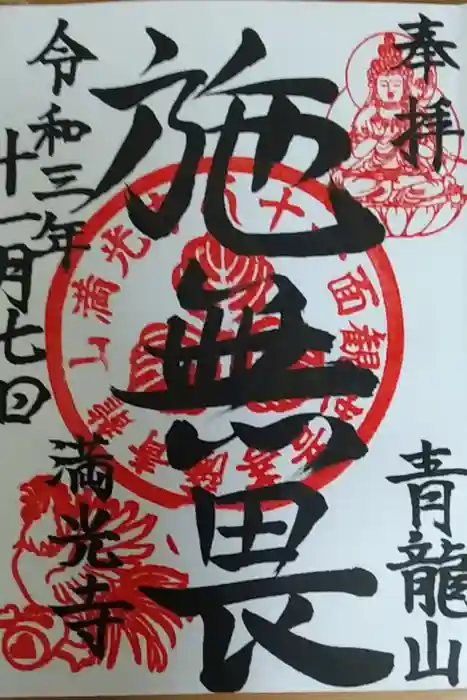 奉拝
青龍山
施無畏
令和三年
十一月七日
満光寺
十一面観世音菩薩
青龍山満光